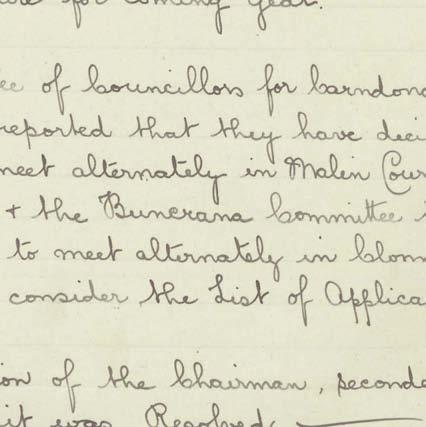 for coming year.
ee of Councillors for Carndona
reported that they have deci
meet alternately in Malin Cour
+ the Buncrana Committee
to meet alternately in Clonm
consider the List of Applica
ion of the Chairman, seconde
it was Resolved: